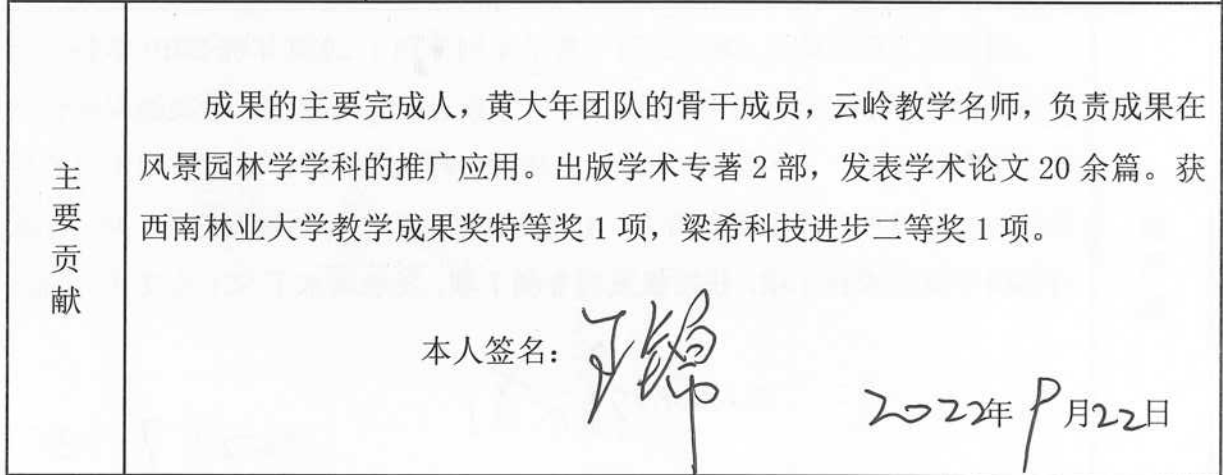 主要贡献
成果的主要完成人，黄大年团队的骨干成员，云岭教学名师，负责成果在
风景园林学学科的推广应用。出版学术专著2部，发表学术论文20余篇。获
西南林业大学教学成果奖特等奖1项，梁希科技进步二等奖1项。
本人签名：王锦
2022年9月22日